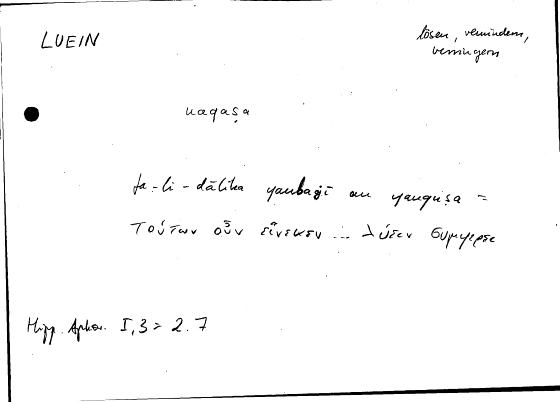 LUEIN
lösen, vermindern,
verringern
naqaṣa
fa-li-dālika yanbaġī an yanquṣa =
τούτων οὖν εἵνεκεν ... λύειν συμφέρει
Hipp. Aphor. I,3 = 2.7